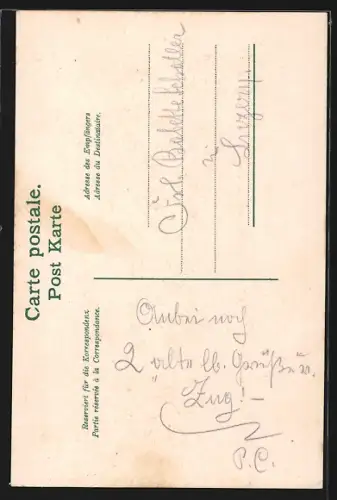 Carte postale.
Post Karte
Reserviert für die Korrespondenz.
Partie réservée à la Correspondance.
Adresse des Empfängers
Adresse du Destinataire.
Anbei noch
2 alte lb. Grüße v.
Zug! –
P.C.
Frl.
in
Luzern.